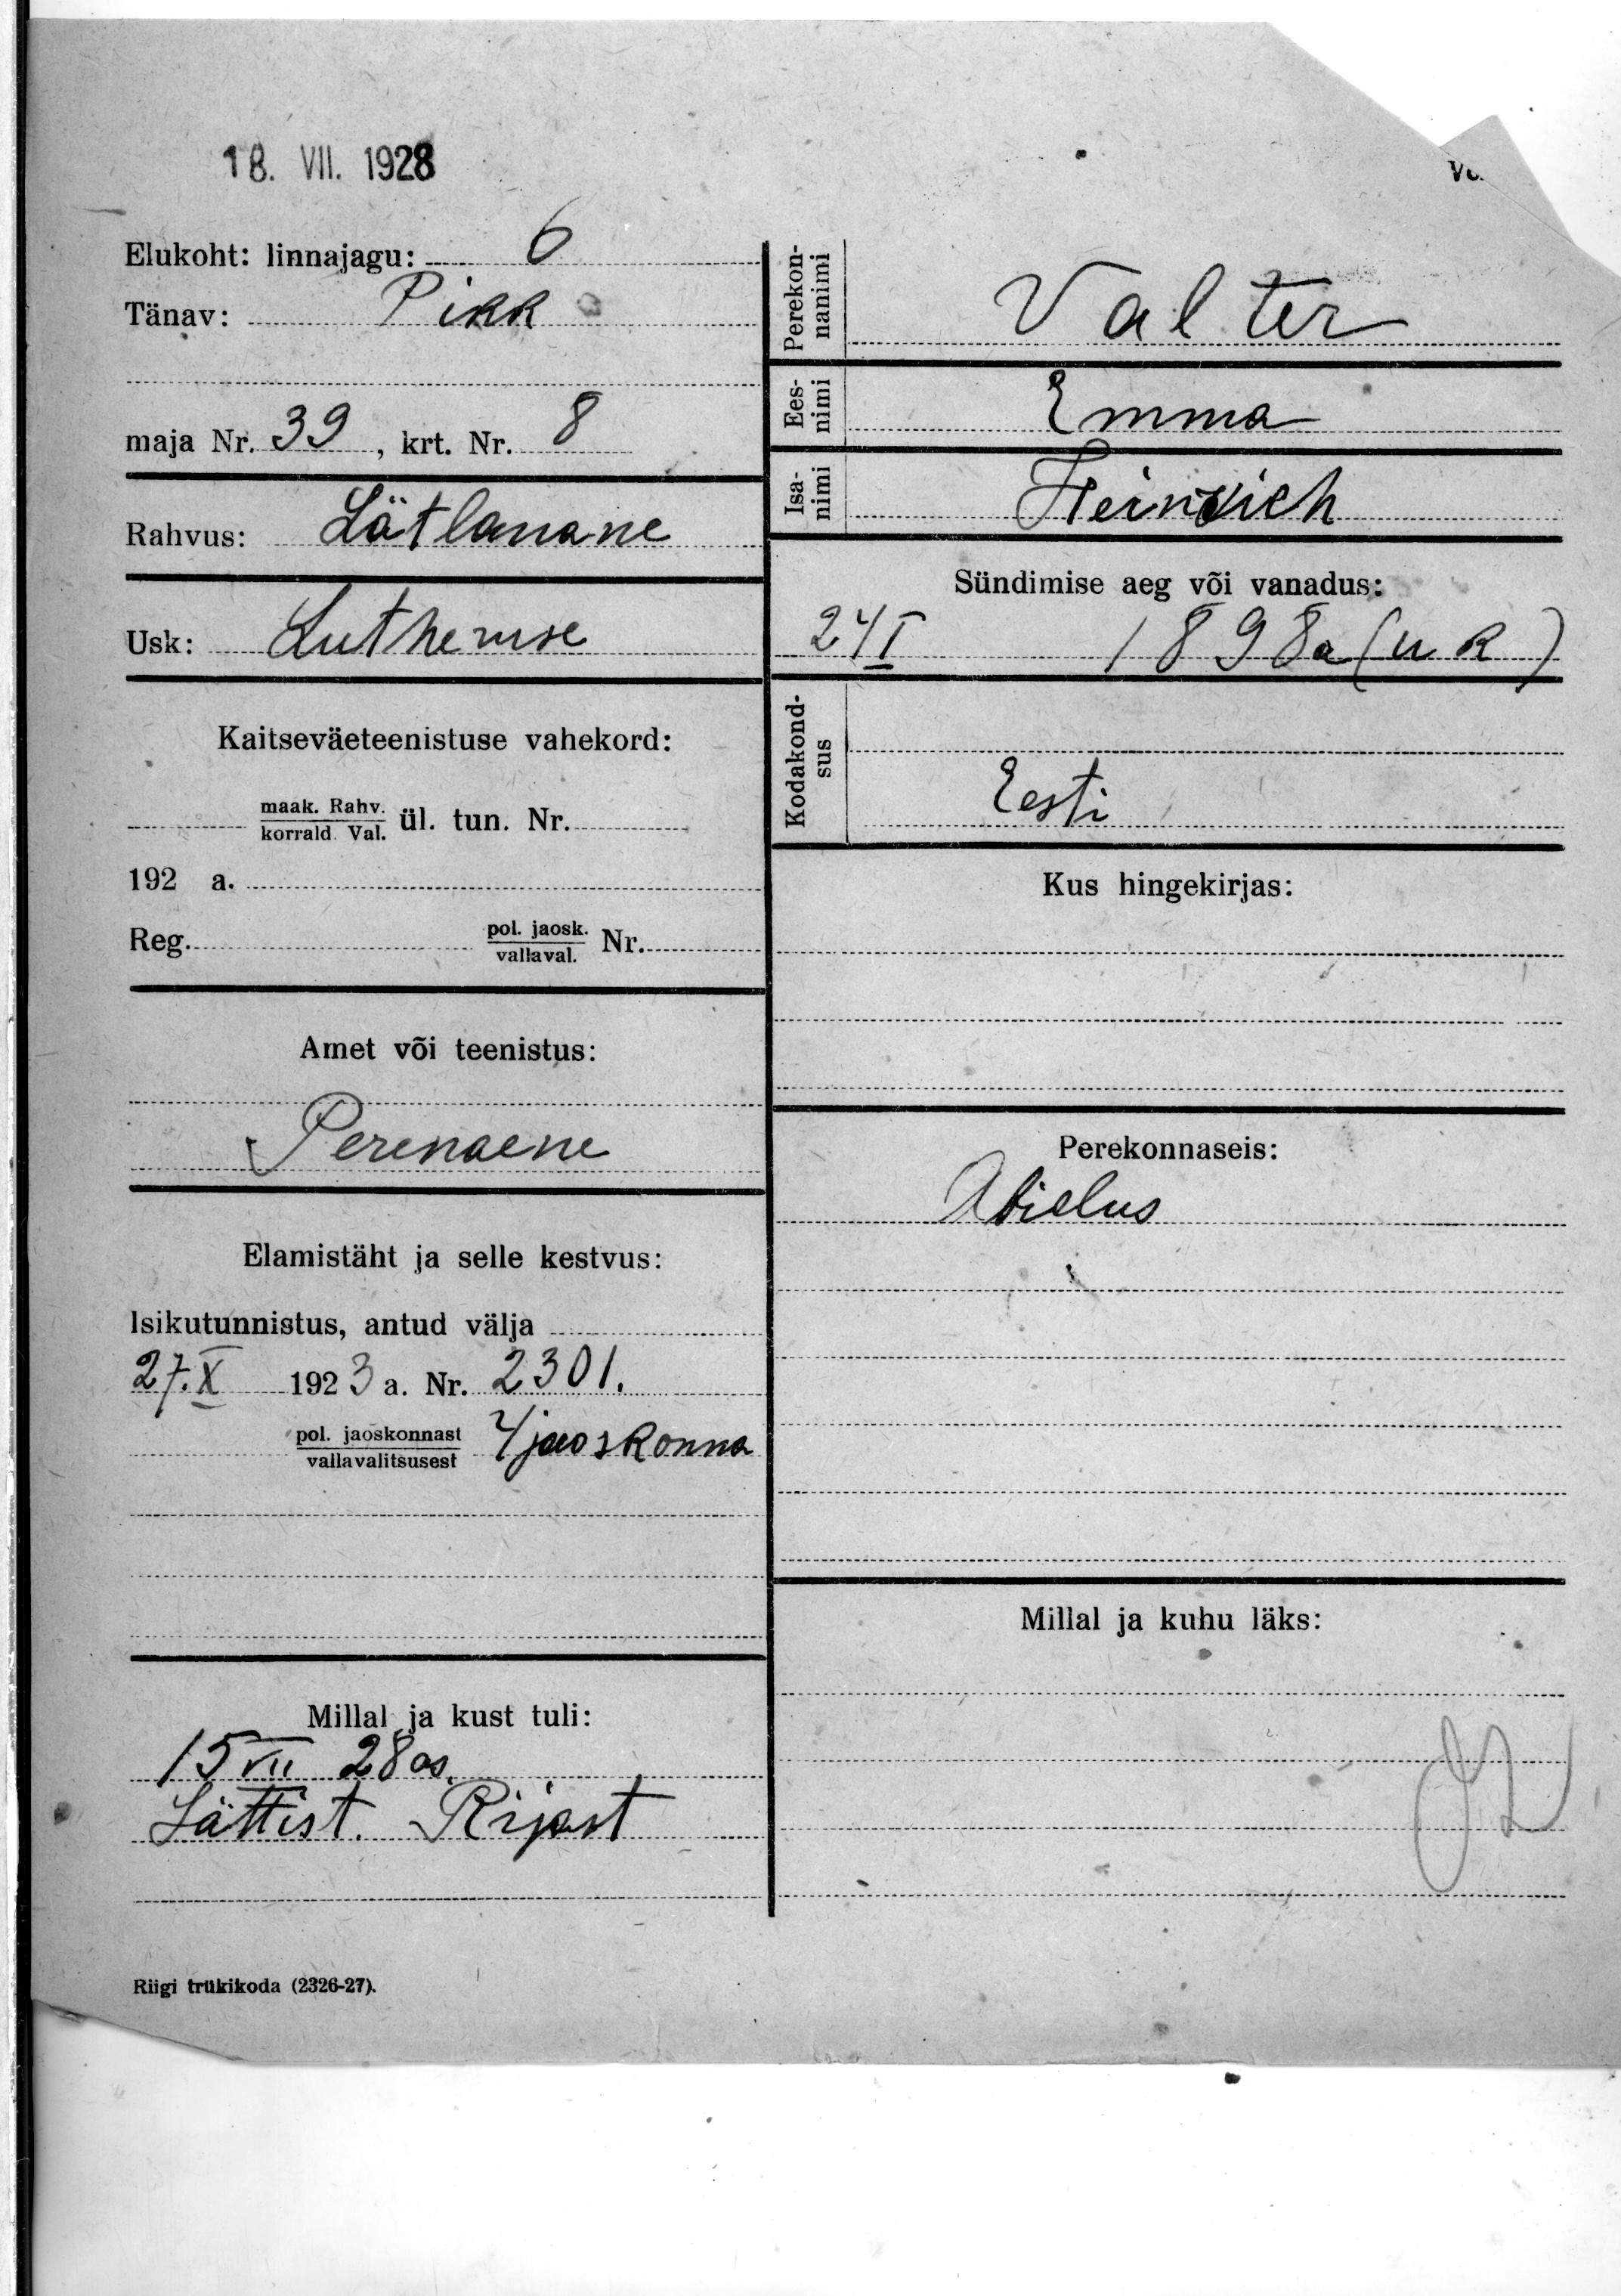 18. VII. 1928
Elukoht: linnajagu: 6
Tänav: Pikk
maja Nr. 39, krt. Nr. 8
Rahvus: Lätlanane
Usk: Lutheruse
Kaitseväeteenistuse vahekord:
maak. Rahv.
korrald. Val. ül. tun. Nr.
192 a.
Reg. pol. jaosk.
vallaval. Nr.
Amet või teenistus:
Perenaene
Elamistäht ja selle kestvus:
Isikutunnistus, antud välja
27.X 1923 a. Nr. 2301.
pol. jaoskonnast
vallavalitsusest 4 jaoskonna
Millal ja kust tuli:
15 VII 28 a.
Lättist. Rijast
Riigi trükikoda (2326-27).
Perekon-
nanimi Valter
Ees-
nimi Emma
Isa-
nimi Heinrich
Sündimise aeg või vanadus:
24 I 1898 a (u k)
Kodakond-
sus Eesti
Kus hingekirjas:
Perekonnaseis:
Abielus
Millal ja kuhu läks: